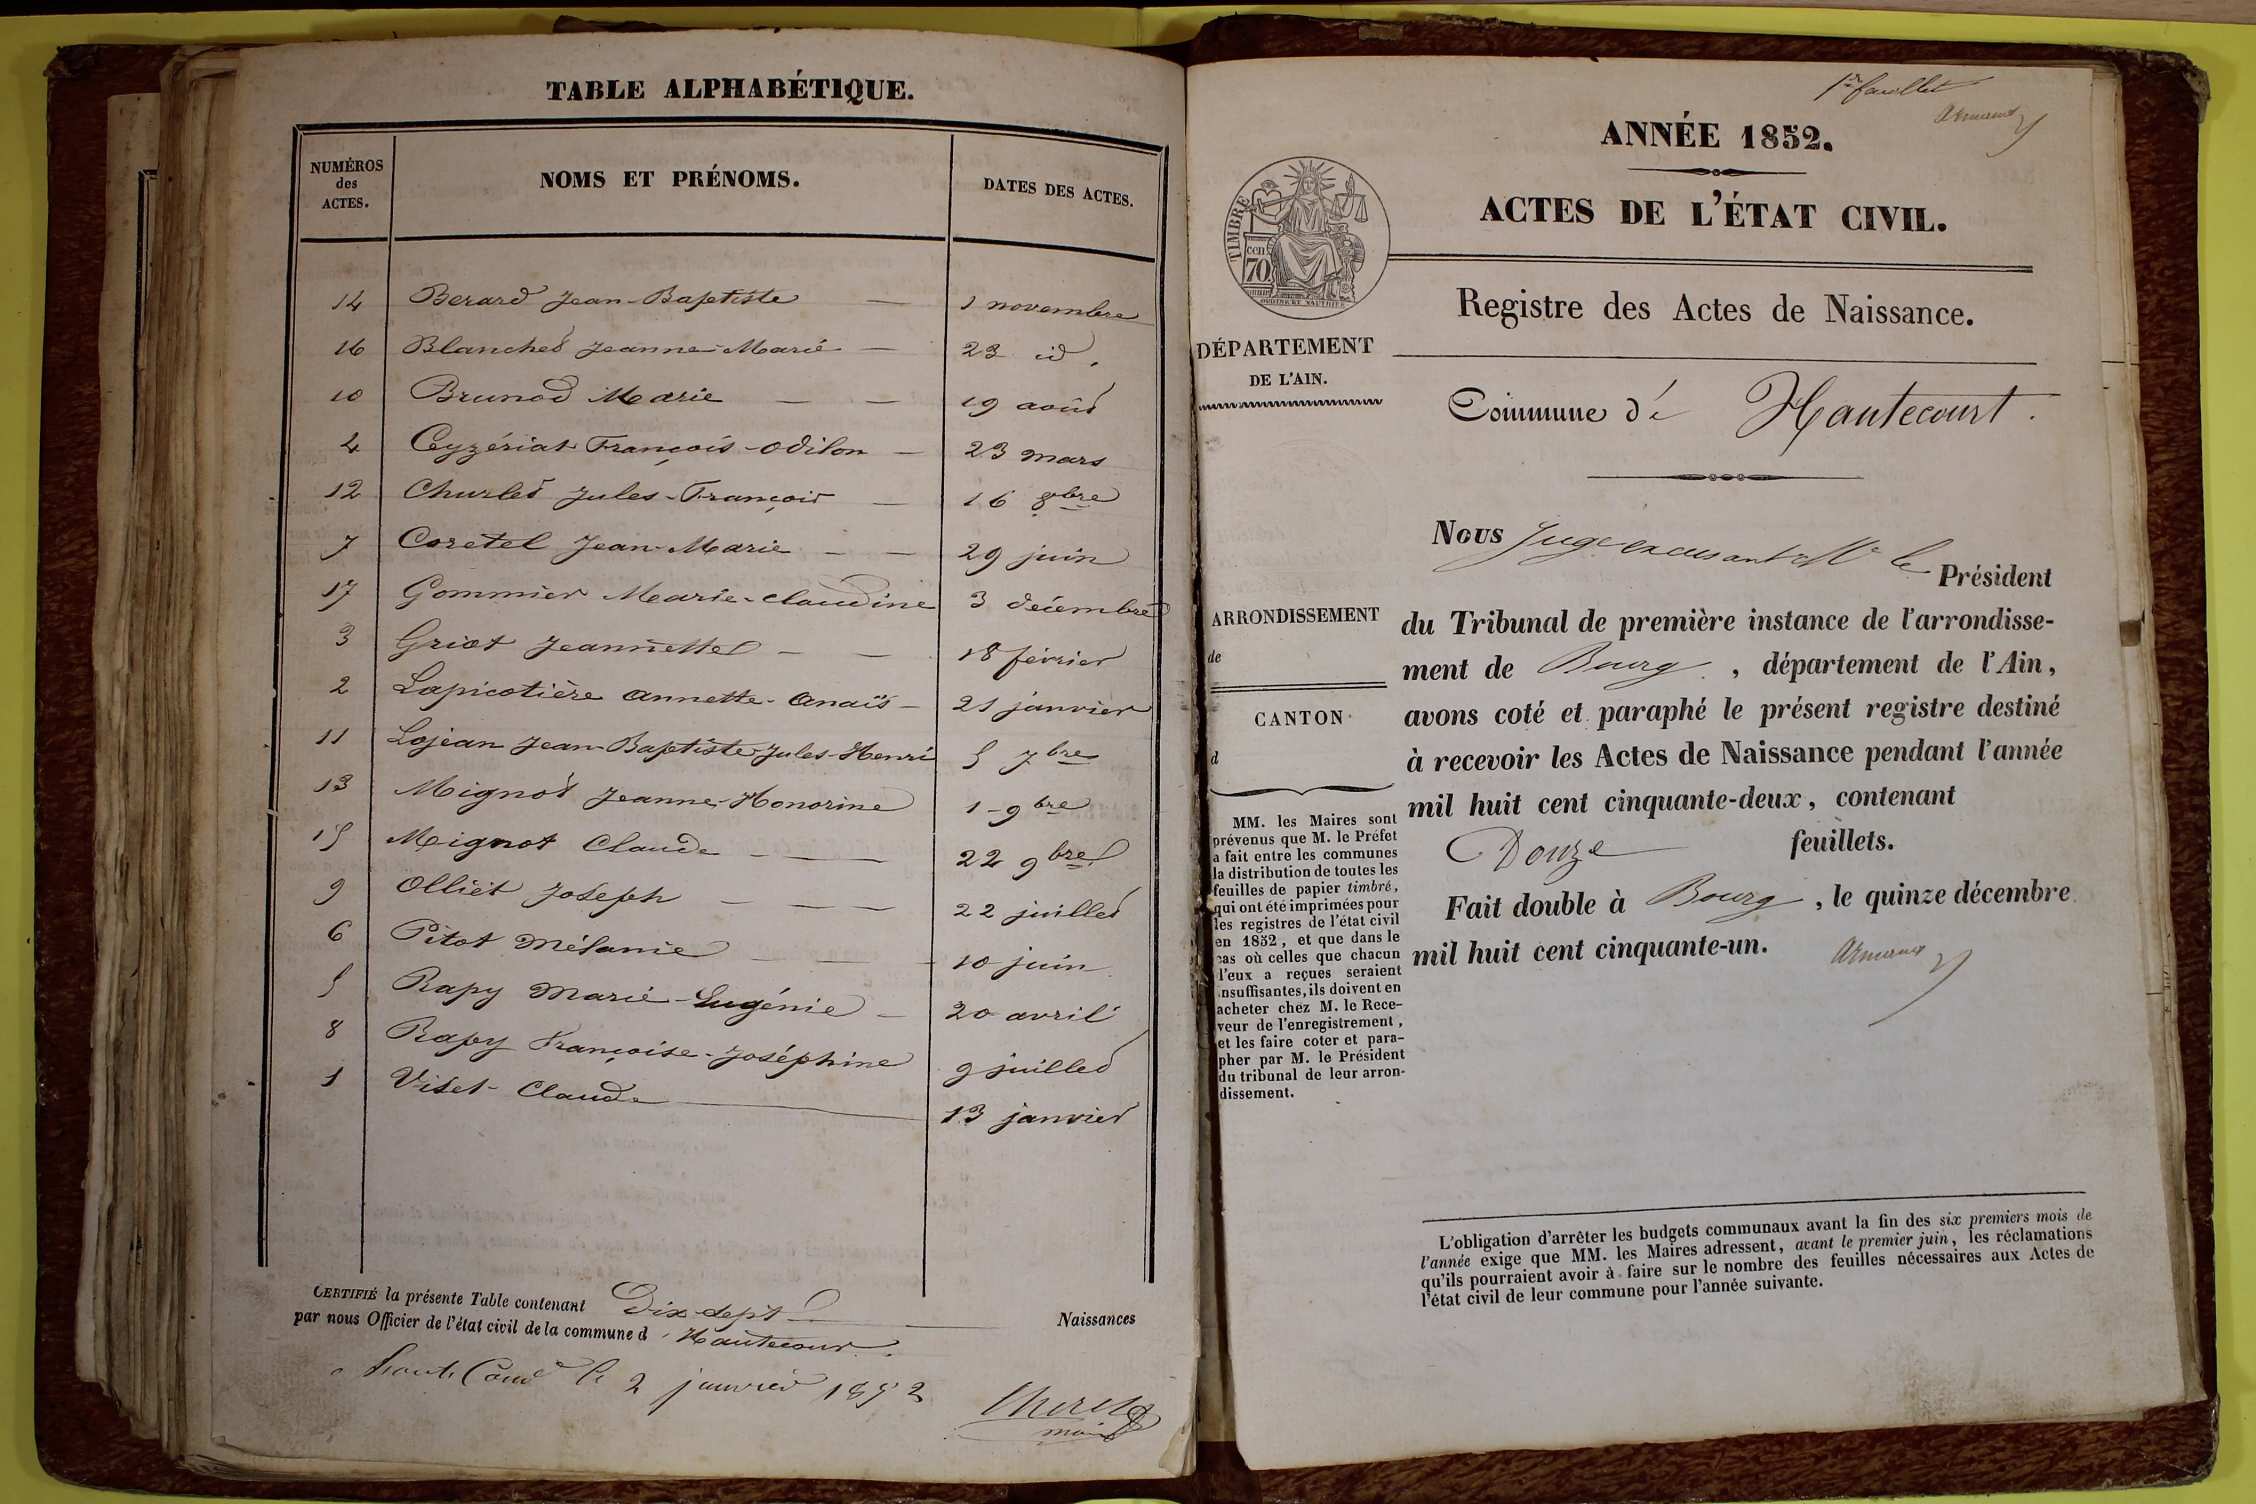 TABLE ALPHABÉTIQUE.
NUMÉROS
des
ACTES.
NOMS ET PRÉNOMS.
DATES DES ACTES.
14 Berard Jean-Baptiste — 1 novembre
16 Blanchet Jeanne-Marie — 23 id.
10 Brunod Marie — — 19 août
4 Ceyzériat François-Odilon — 23 mars
12 Churlet Jules-François — 16 8bre
7 Coretel Jean-Marie — — 29 juin
17 Gommier Marie-Claudine 3 décembre
3 Griot Jeannette — — 18 février
2 Lapicotière Annette-Anaïs — 21 janvier
11 Lojean Jean-Baptiste Jules-Henri 5 7bre
13 Mignot Jeanne-Honorine 1-9bre
15 Mignot Claude — — — 22 9bre
9 Olliet Joseph — — — 22 juillet
6 Pitot Mélanie — — — 10 juin
5 Rapy Marie-Eugénie — 20 avril
8 Rapy Françoise-Joséphine 9 juillet
1 Viset Claude — 13 janvier
CERTIFIÉ la présente Table contenant Dix-sept — Naissances
par nous Officier de l'état civil de la commune d'Hautecour.
le 2 janvier 1852
maire
1er feuillet
ANNÉE 1852.
ACTES DE L'ÉTAT CIVIL.
TIMBRE
cen
70
Registre des Actes de Naissance.
DÉPARTEMENT
DE L'AIN.
Commune d'e Hautecourt.
Nous Juge excusant Mr le Président
du Tribunal de première instance de l'arrondisse-
ment de Bourg, département de l'Ain,
avons coté et paraphé le présent registre destiné
à recevoir les Actes de Naissance pendant l'année
mil huit cent cinquante-deux, contenant
Douze feuillets.
Fait double à Bourg, le quinze décembre
mil huit cent cinquante-un.
ARRONDISSEMENT
de
CANTON
d
MM. les Maires sont
prévenus que M. le Préfet
a fait entre les communes
la distribution de toutes les
feuilles de papier timbré,
qui ont été imprimées pour
les registres de l'état civil
en 1852, et que dans le
cas où celles que chacun
d'eux a reçues seraient
insuffisantes, ils doivent en
acheter chez M. le Rece-
veur de l'enregistrement,
et les faire coter et para-
pher par M. le Président
du tribunal de leur arron-
dissement.
L'obligation d'arrêter les budgets communaux avant la fin des six premiers mois de
l'année exige que MM. les Maires adressent, avant le premier juin, les réclamations
qu'ils pourraient avoir à faire sur le nombre des feuilles nécessaires aux Actes de
l'état civil de leur commune pour l'année suivante.